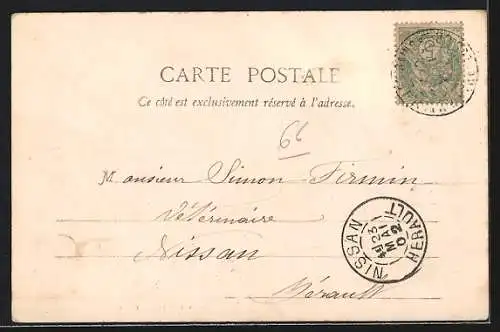 CARTE POSTALE
Ce côté est exclusivement réservé à l'adresse.
66
Monsieur Simon Firmin
Vétérinaire
Nissan
Hérault
NISSAN HERAULT
23
MAI
02